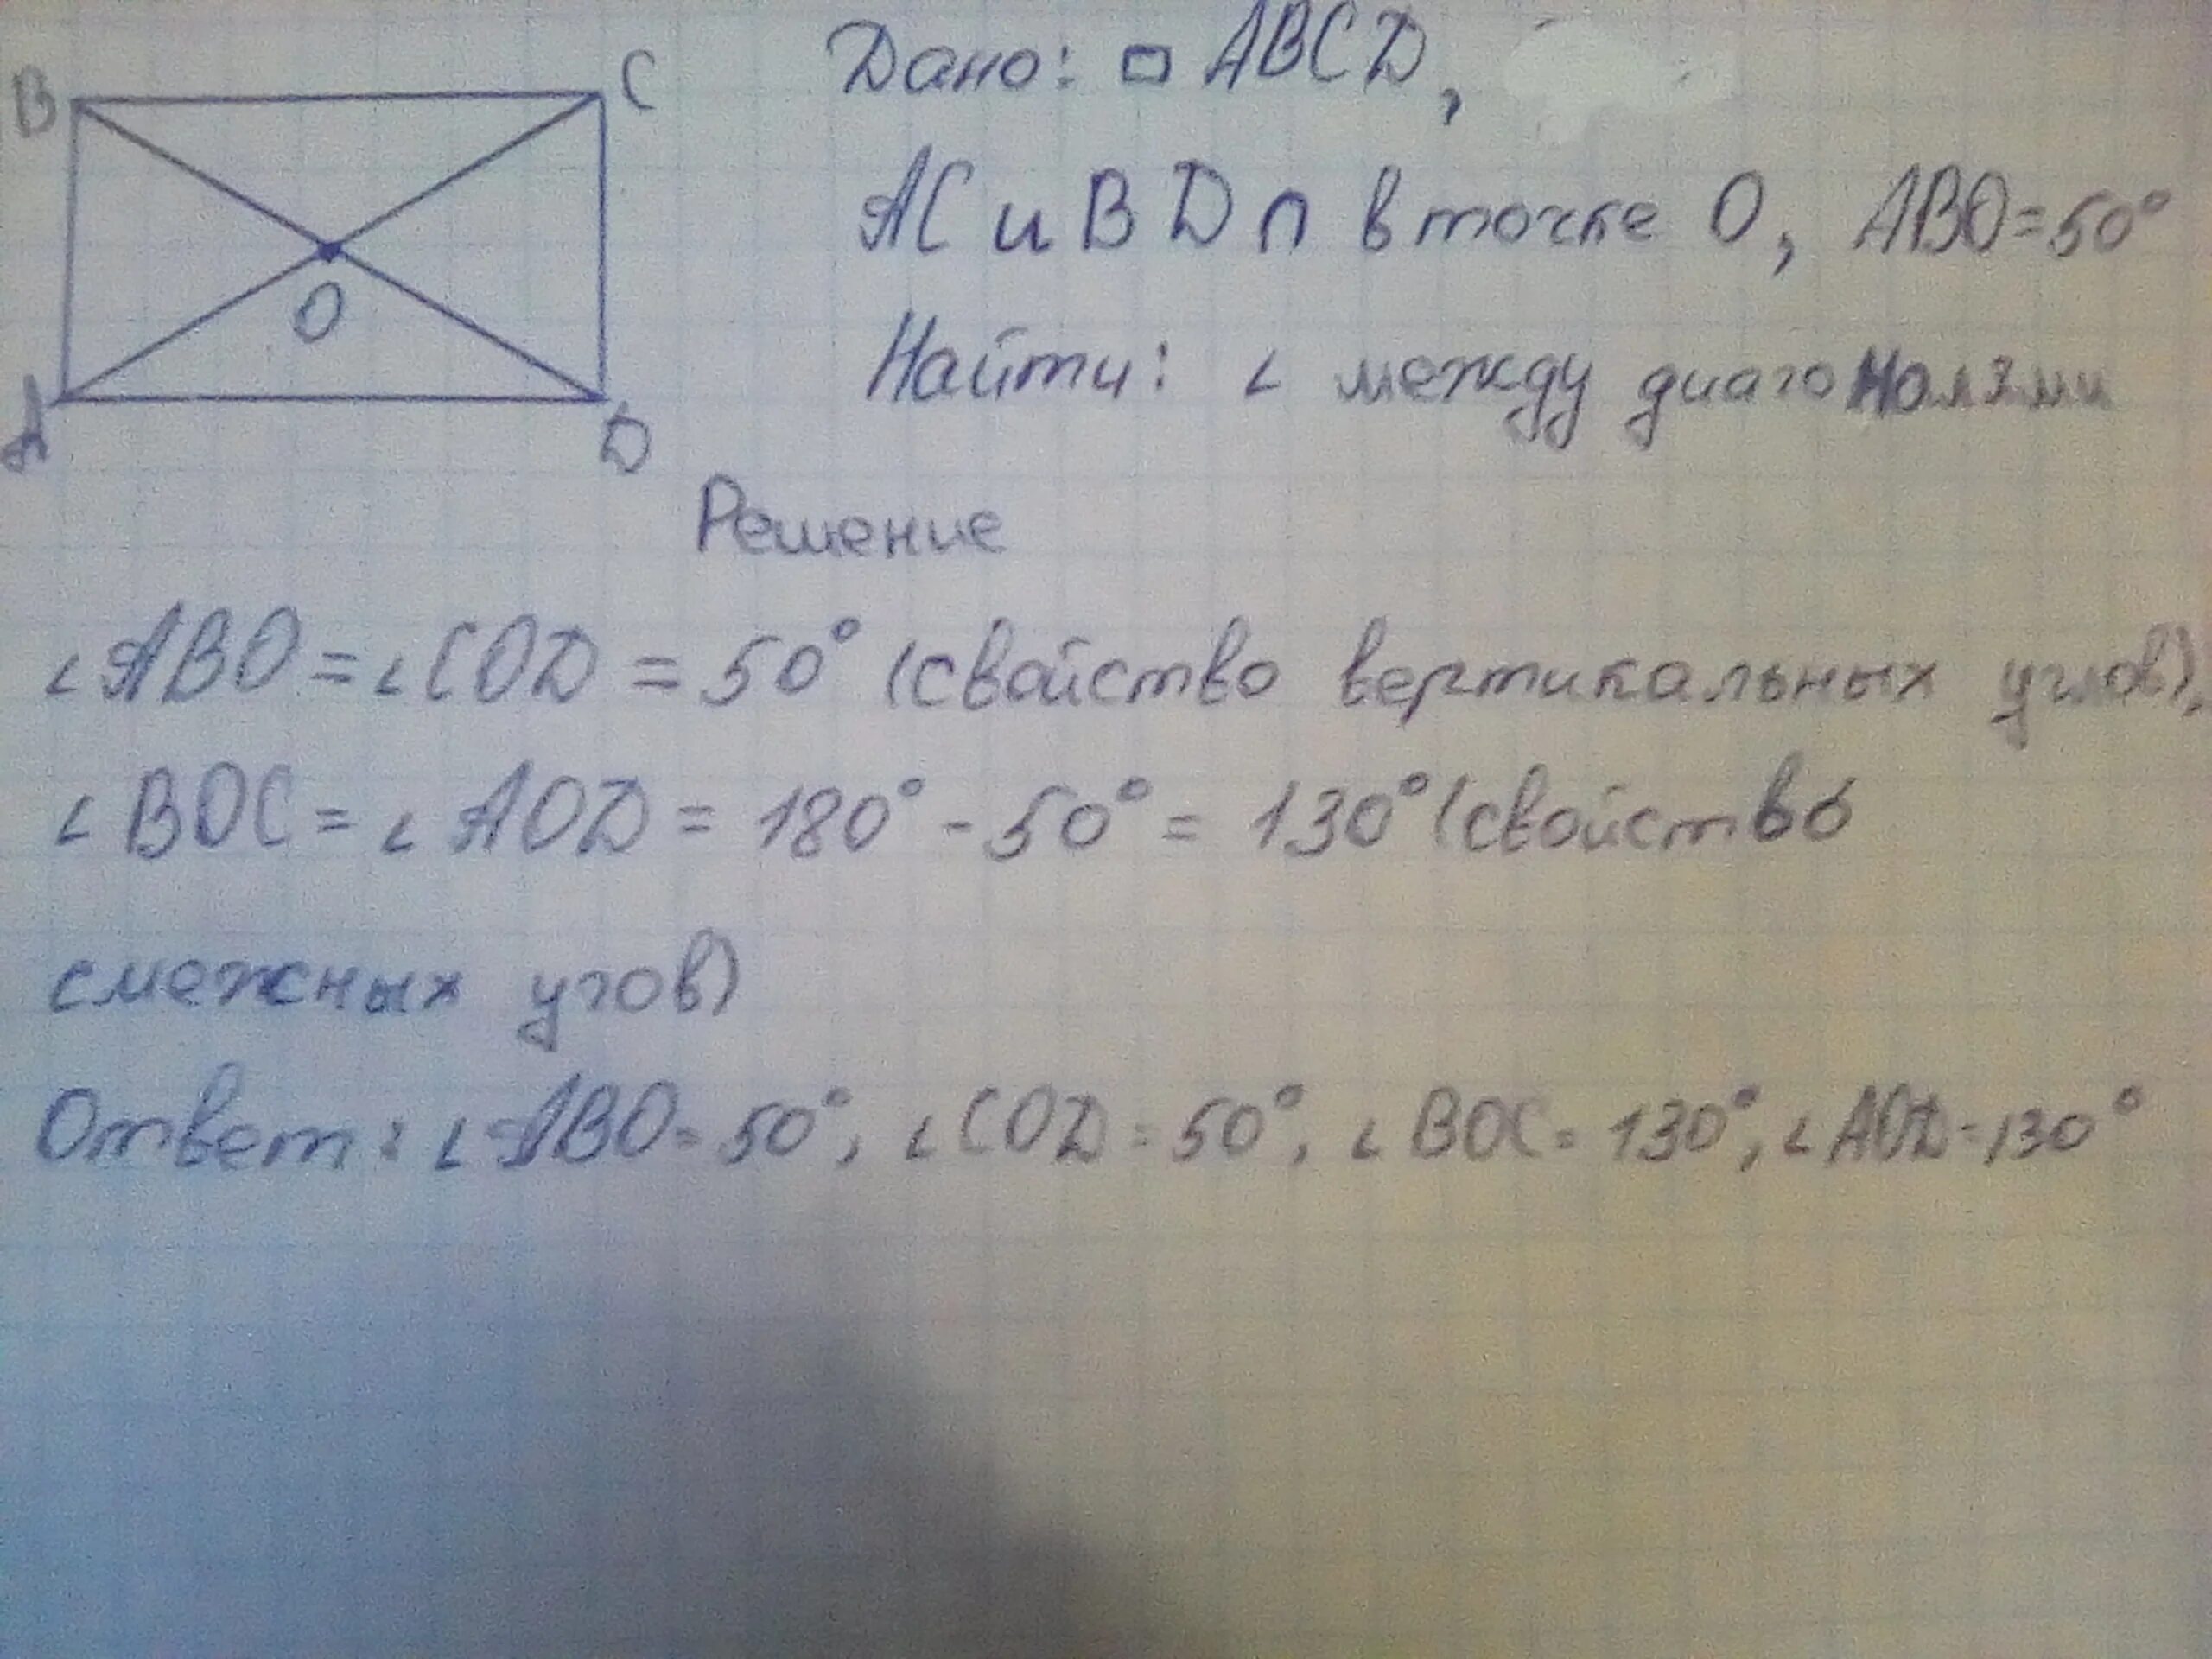 B
C
O
A
D
Дано: □ ABCD,
AC и BD ∩ в точке O, ABO=50°
Найти: ∠ между диагоналями
Решение
∠ABO=∠COD=50° (свойство вертикальных углов),
∠BOC=∠AOD=180°-50°=130° (свойство
смежных угов)
Ответ: ∠ABO=50°, ∠COD=50°, ∠BOC=130°, ∠AOD=130°